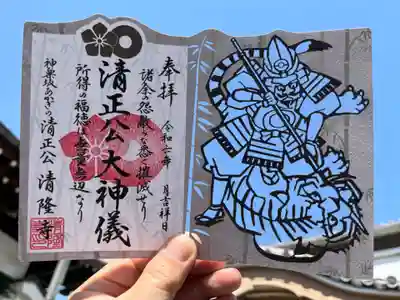 奉拝
令和七年　月吉祥日
諸余の怨敵皆悉摧滅せり
清正公大神儀
所得の福徳は無量無辺なり
神楽坂あかぎの清正公 清隆寺